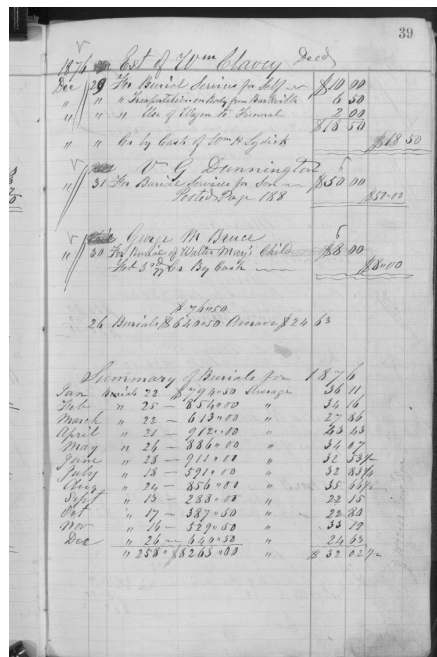 39
1876 Est of Wm Clavey Decd
Dec 29 For Burial Services for Self $10 00
" " " Transportation on Body from 6 50
" " " Use of Wagon to Funeral 2 00
$18 50
" " Cr by Cash of Wm H. Sydick $18 50
V G Dunnington
" 31 For Burial Services for Son $50 00
Posted Page 188 $50.00
George M Bruce
" 30 For Burial of Walter May's Child $8 00
Feb 3rd 77 Cr By Cash $8.00
$76.50
26 Burials $640.50 Average $24 63
Summary of Burials for 1876
Jan Burials 22 $794.50 Average 36 11
Feb " 25 — 854.00 " 34 16
March " 22 — 613.00 " 27 86
April " 21 — 912.00 " 43 43
May " 26 — 886.00 " 34 07
June " 28 — 911.00 " 32 53½
July " 18 — 591.00 " 32 83¼
Aug " 24 — 856.00 " 35 66¼
Sept " 13 — 288.00 " 22 15
Oct " 17 — 387.50 " 22 80
Nov " 16 — 529.50 " 33 10
Dec " 26 — 640.50 " 24 63
" 258 " $8263.00 " $32 02